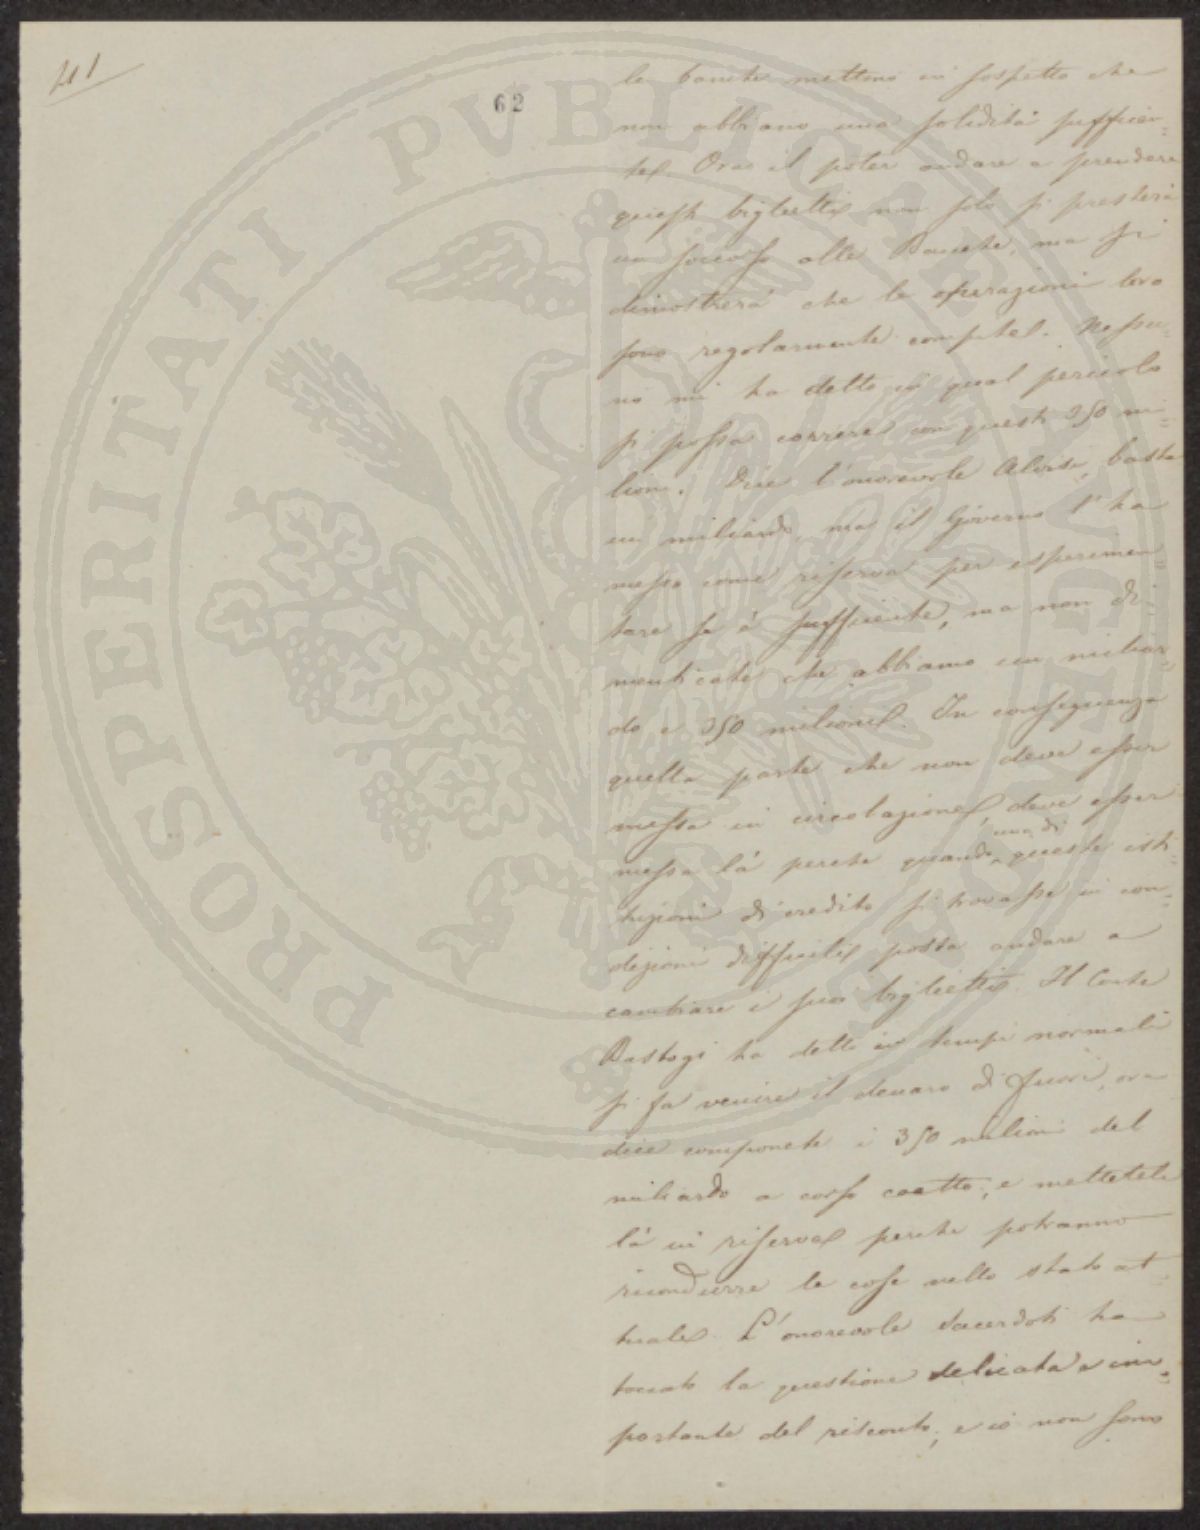 41
62
PROSPERITATI PVBLICAE AVGENDAE
le banche mettono in sospetto che
non abbiano una solidità sufficien=
te. Ora il poter andare a prendere
questi biglietti non solo si presterà
un soccorso alle Banche, ma si
dimostrerà che le operazioni loro
sono regolarmente compite. Nessu=
no mi ha detto in qual pericolo
si possa correre con questi 350 mi=
lioni. Dice l'onorevole Alvisi, basta
un miliardo, ma il Governo l'ha
messo come riserva per esperimen
tare se è sufficiente, ma non di=
menticate che abbiamo un miliar=
do e 350 milioni. In conseguenza
quella parte che non deve esser
messa in circolazione, deve esser
messa là perchè quando una di queste isti=
tuzioni di credito si trovasse in con=
dizioni difficili possa andare a
cambiare i suoi biglietti. Il Conte
Bastogi ha detto in tempi normali
si fa venire il denaro di fuori, ora
dice componete i 350 milioni del
miliardo a corso coatto, e metteteli
là in riserva perchè potranno
ricondurre le cose nello stato at=
tuale. L'onorevole Sacerdoti ha
toccato la questione delicata e im=
portante del risconto, e io non sono